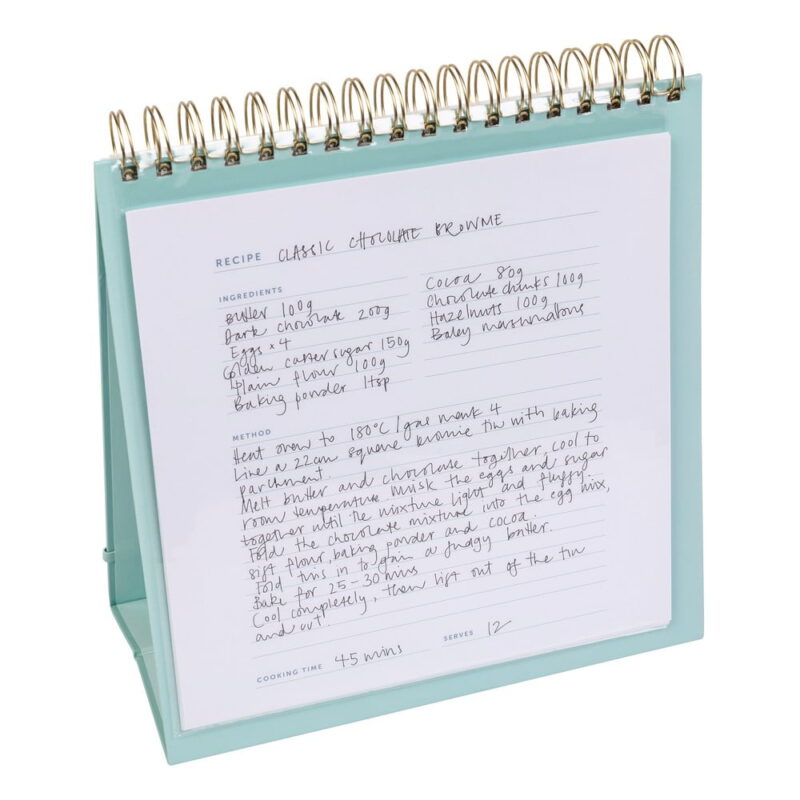 RECIPE CLASSIC CHOCOLATE BROWNIE
INGREDIENTS
Butter 100g
Dark chocolate 200g
Eggs x 4
Golden caster sugar 150g
Plain flour 100g
Baking powder 1tsp
Cocoa 80g
Chocolate chunks 100g
Hazelnuts 100g
Baby marshmallows
METHOD
Heat oven to 180°C/gas mark 4
Line a 22cm square brownie tin with baking
parchment.
Melt butter and chocolate together, cool to
room temperature. Whisk the eggs and sugar
together until the mixture light and fluffy.
Fold the chocolate mixture into the egg mix,
sift flour, baking powder and cocoa.
Fold this in to gain a fudgy batter.
Bake for 25-30 mins
Cool completely, then lift out of the tin
and cut.
COOKING TIME 45 mins
SERVES 12